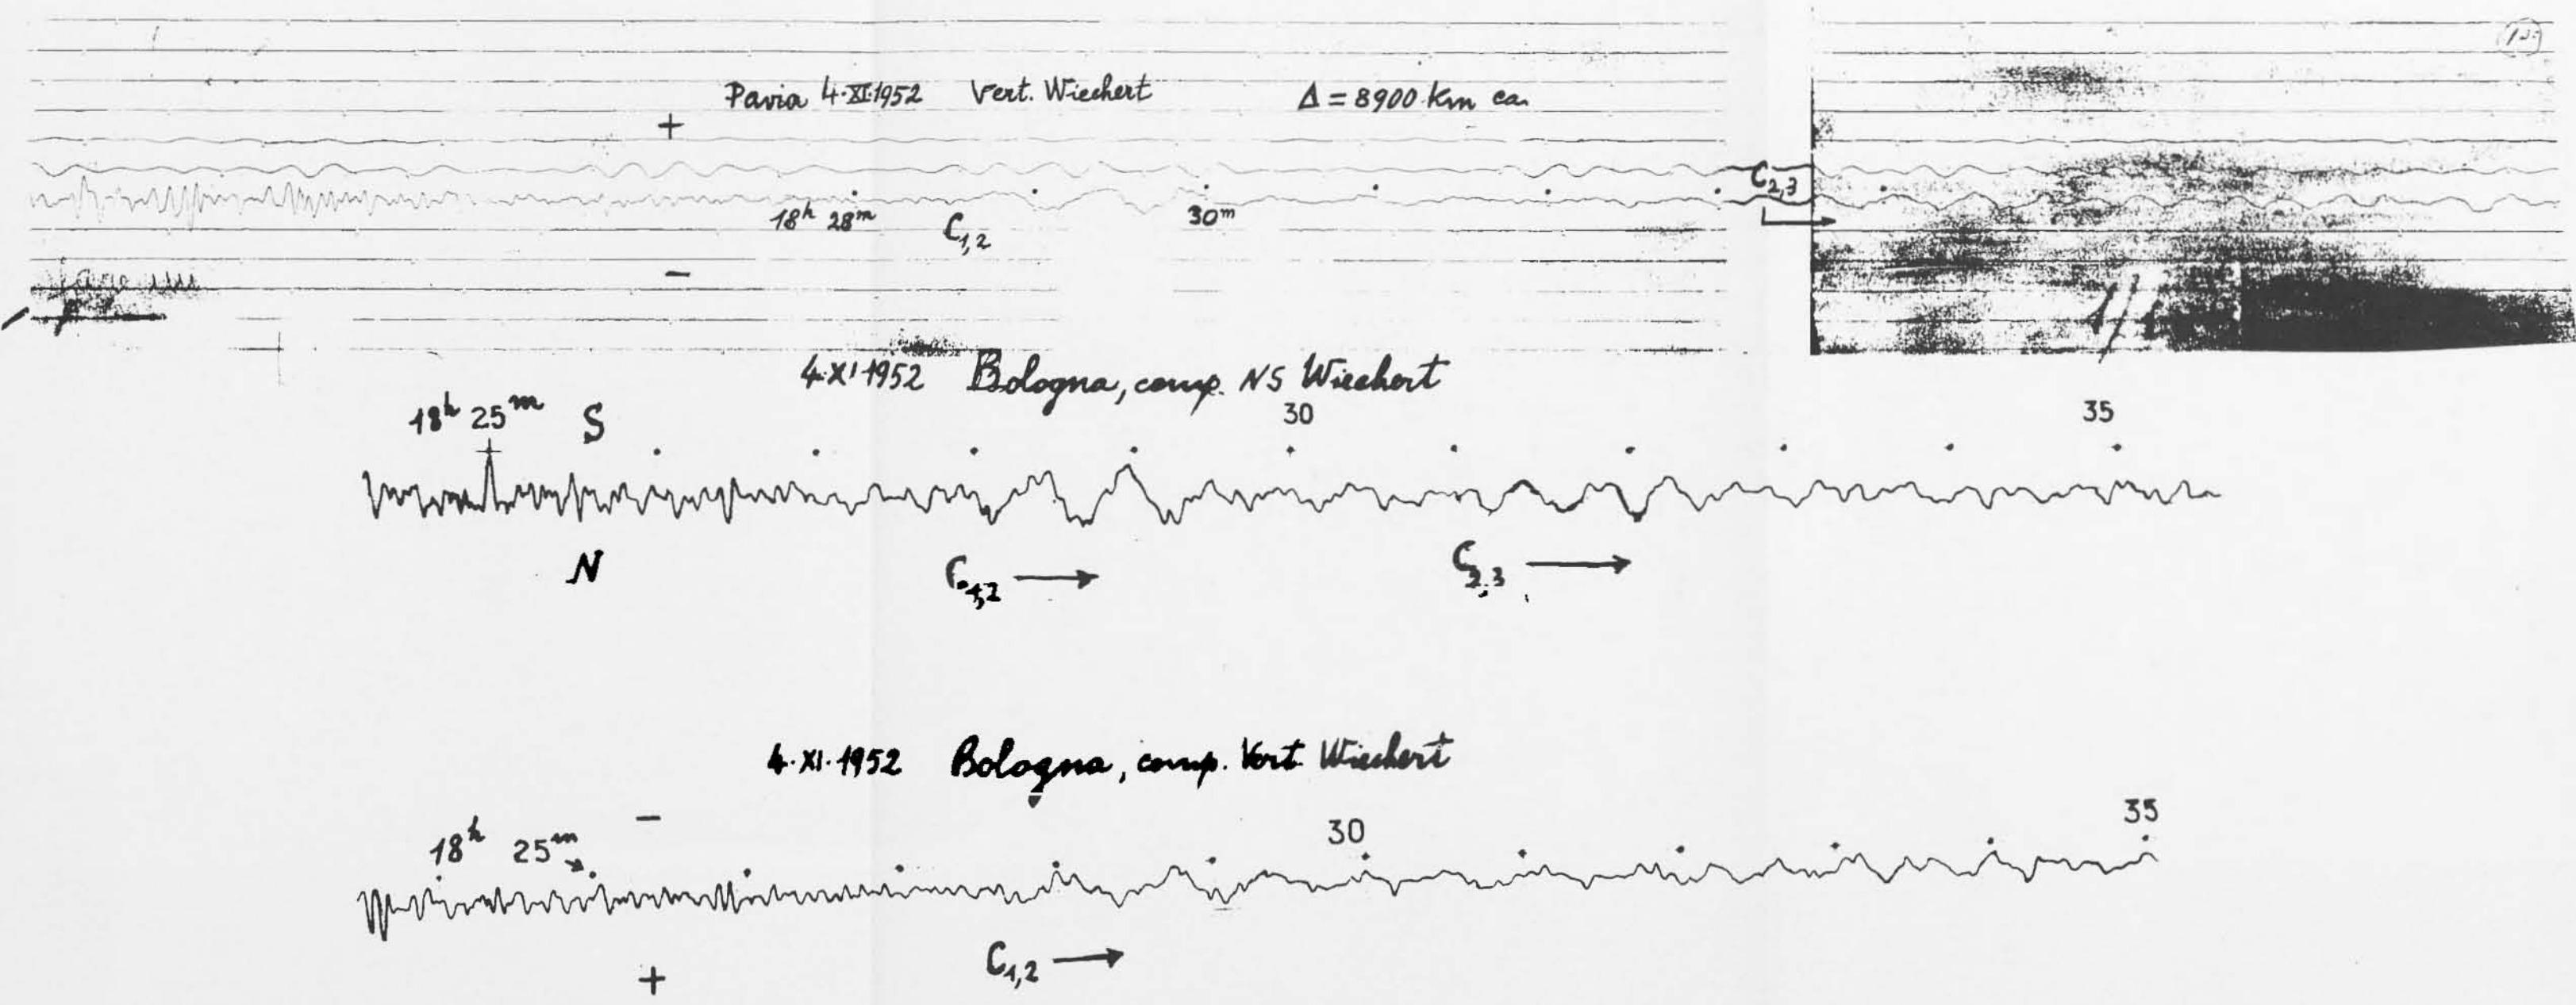 Pavia 4·XI·1952 Vert. Wiechert Δ = 8900 km ca.
+
C2,3
18h 28m C1,2 30m
−
4·XI·1952 Bologna, comp. NS Wiechert
18h 25m S 30 35
N C1,2 → C2,3 →
4·XI·1952 Bologna, comp. Vert Wiechert
18h 25m − 30 35
+ C1,2 →